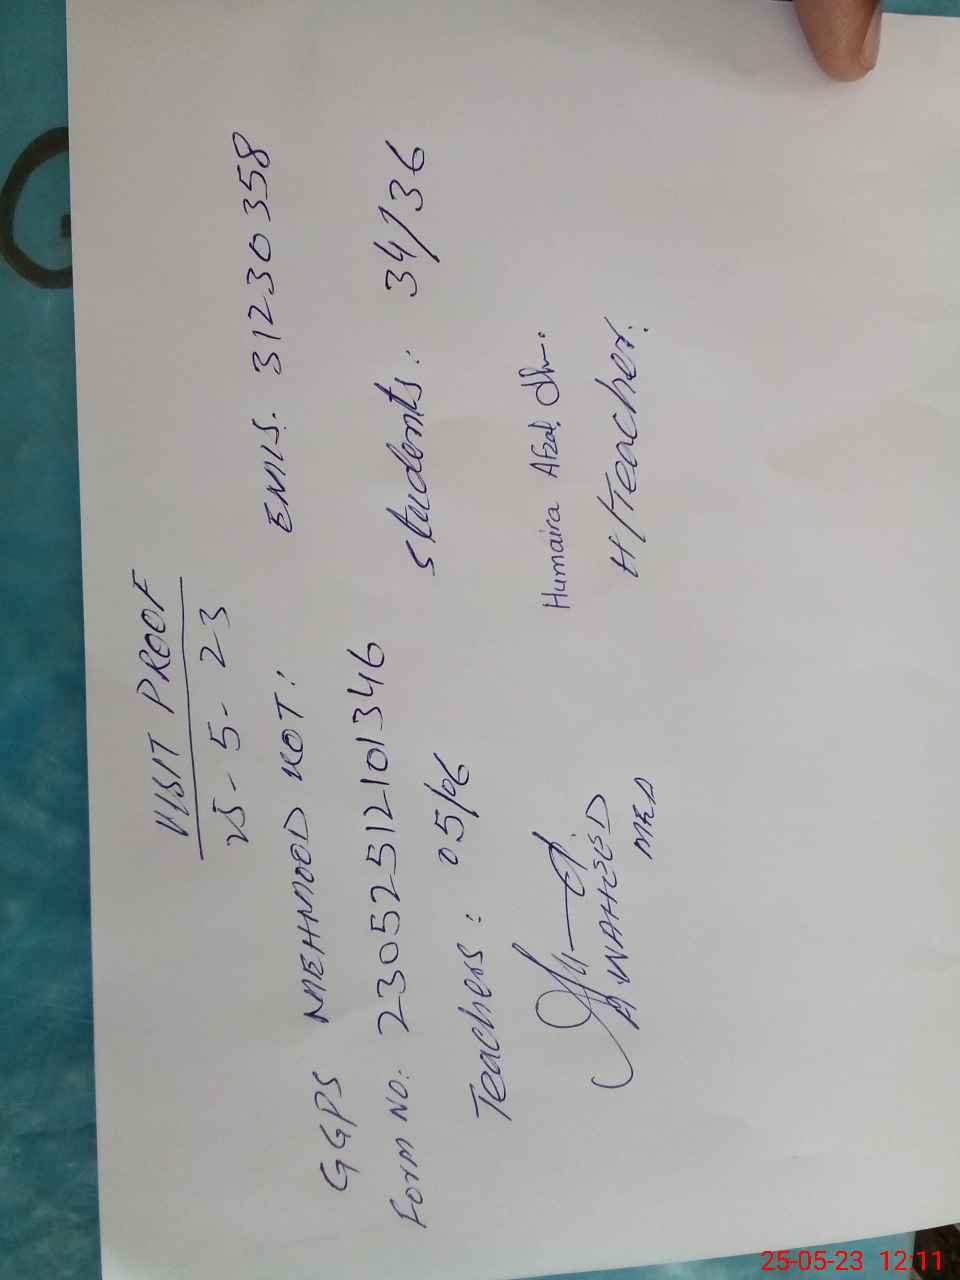 VISIT PROOF
25-5-23
GGPS MEHMOOD KOT: EMIS. 31230358
Form No: 23052512101346 Students: 34/36
Teachers: 05/06
Humaira Afzal
A WAHEED H/Teacher.
MEA
25-05-23 12:11